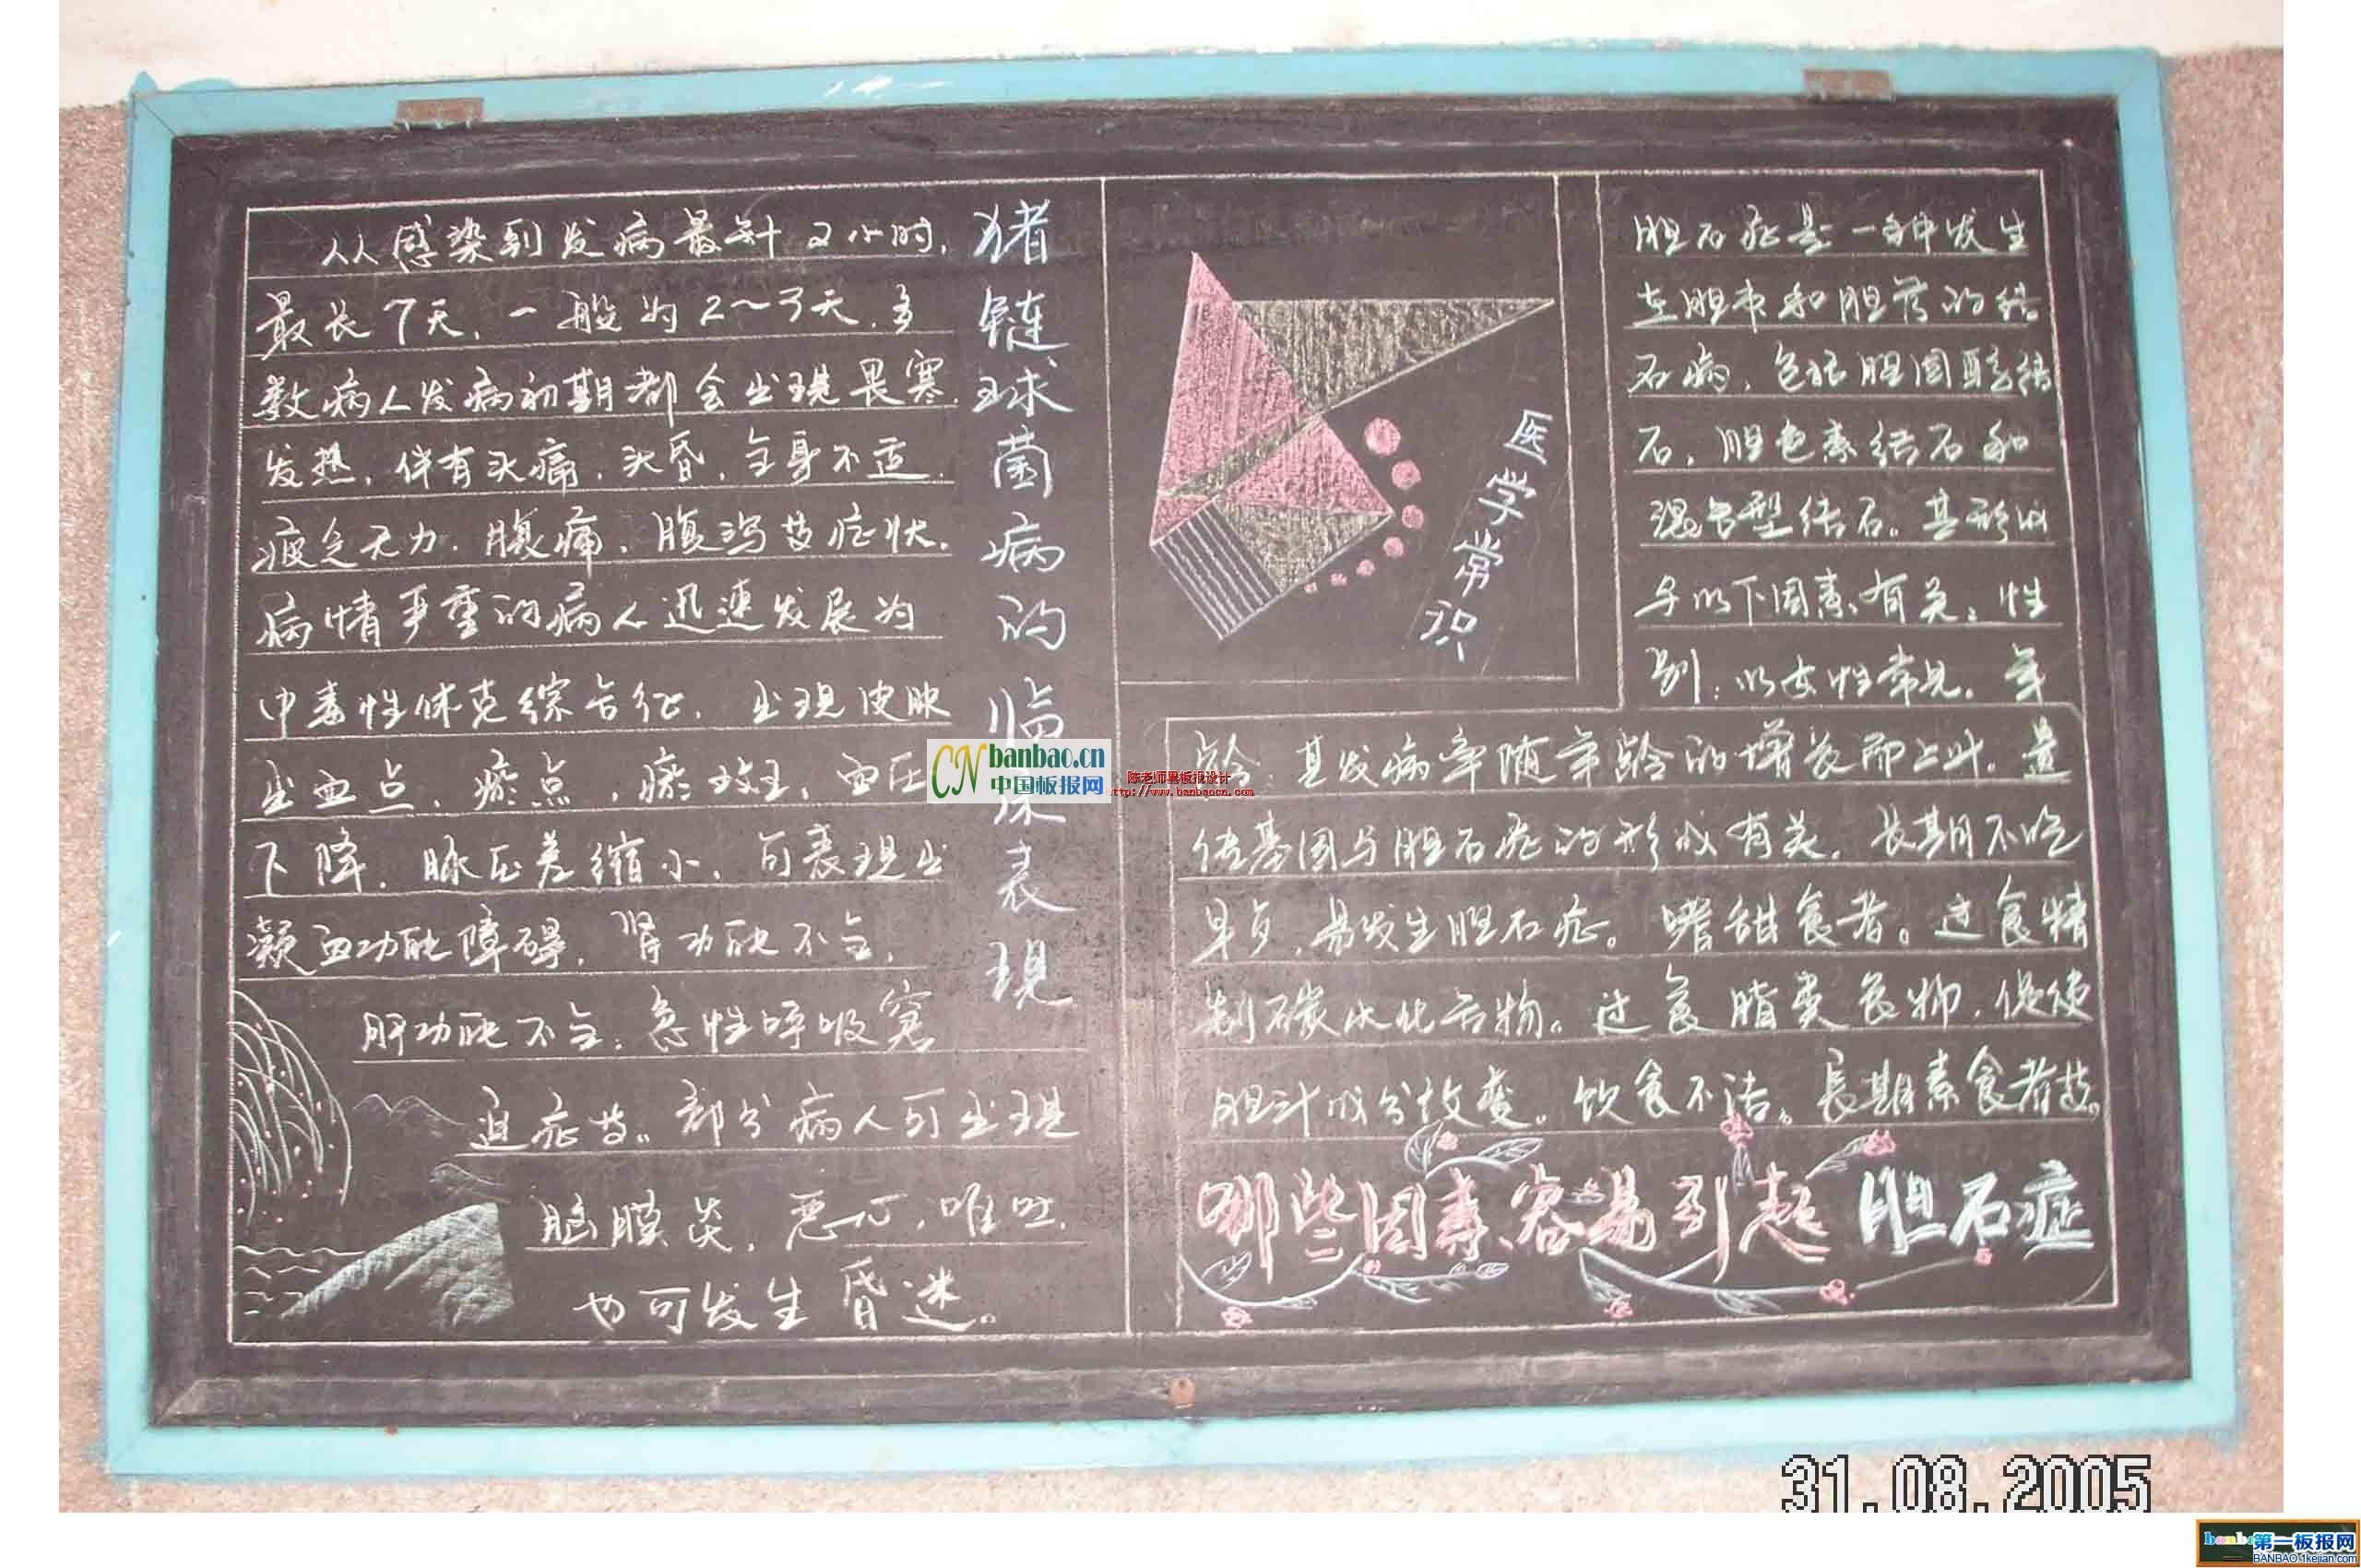 猪链球菌病的临床表现
从感染到发病最短2小时,
最长7天,一般为2~3天,多
数病人发病初期都会出现畏寒、
发热,伴有头痛、头昏,全身不适、
疲乏无力、腹痛、腹泻等症状。
病情严重的病人迅速发展为
中毒性休克综合征,出现皮肤
出血点、瘀点,瘀斑,血压
下降,脉压差缩小,可表现出
凝血功能障碍,肾功能不全,
肝功能不全,急性呼吸窘
迫症等。部分病人可出现
脑膜炎,恶心,呕吐,
也可发生昏迷。
医学常识
胆石症是一种发生
在胆囊和胆管的结
石病,包括胆固醇结
石,胆色素结石和
混合型结石。其形成
与以下因素有关:性
别:以女性常见。年
龄:其发病率随年龄的增长而上升。遗
传基因与胆石症的形成有关。长期不吃
早点,易发生胆石症。嗜甜食者。过食精
制碳水化合物。过食脂类食物,促使
胆汁成分改变。饮食不洁。长期素食者等。
哪些因素容易引起胆石症
CN banbao.cn
中国板报网
陈老师黑板报设计
http://www.banbaocn.com
31.08.2005
第一板报网
BANBAO.1kejian.com